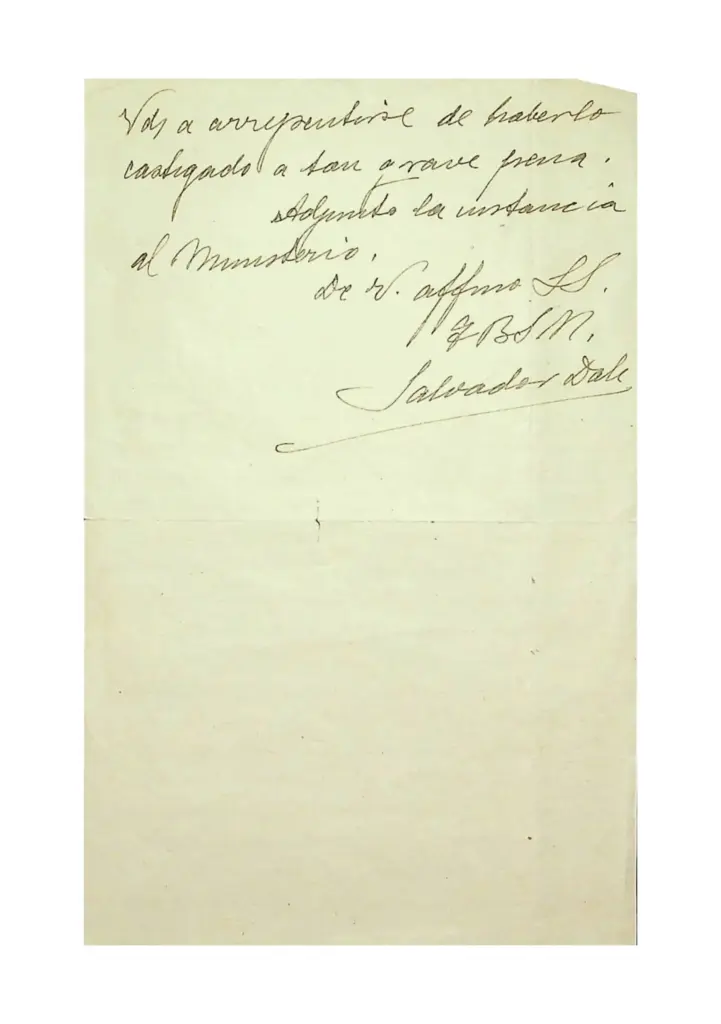 Vds a arrepentirse de haberlo
castigado a tan grave pena.
Adjunto la instancia
al Ministerio.
De V. affmo SS.
q B S M.
Salvador Dalí